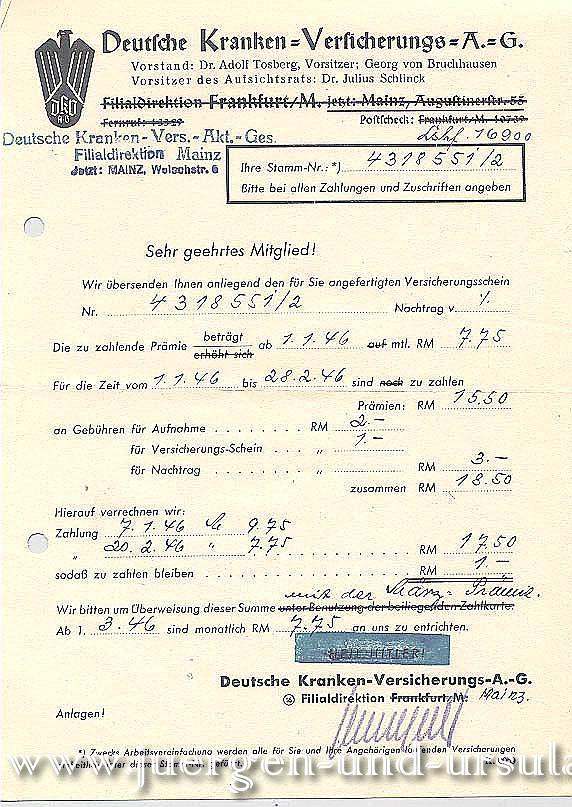 Deutsche Kranken=Versicherungs=A.=G.
Vorstand: Dr. Adolf Tosberg, Vorsitzer; Georg von Bruchhausen
Vorsitzer des Aufsichtsrats: Dr. Julius Schlinck
Filialdirektion Frankfurt/M. jetzt: Mainz, Augustinerstr. 55
Fernruf: 43329
Postscheck: Frankfurt/M. 10739
16900
Deutsche Kranken-Vers.-Akt.-Ges.
Filialdirektion Mainz
Jetzt: MAINZ, Welschstr. 6
Ihre Stamm-Nr.: *) 4318551/2
Bitte bei allen Zahlungen und Zuschriften angeben
Sehr geehrtes Mitglied!
Wir übersenden Ihnen anliegend den für Sie angefertigten Versicherungsschein
Nr. 4318551/2 Nachtrag v. ./.
Die zu zahlende Prämie beträgt erhöht sich ab 1.1.46 auf mtl. RM 7.75
Für die Zeit vom 1.1.46 bis 28.2.46 sind noch zu zahlen
Prämien: RM 15.50
an Gebühren für Aufnahme RM 2.-
für Versicherungs-Schein „ 1.-
für Nachtrag „ RM 3.-
zusammen RM 18.50
Hierauf verrechnen wir:
Zahlung 7.1.46 9.75
„ 20.2.46 " 7.75 RM 17.50
sodaß zu zahlen bleiben RM 1.-
mit der März-Prämie.
Wir bitten um Überweisung dieser Summe unter Benutzung der beiliegenden Zahlkarte.
Ab 1. 3.46 sind monatlich RM 7.75 an uns zu entrichten.
HEIL HITLER!
Deutsche Kranken-Versicherungs-A.-G.
Filialdirektion Frankfurt/M. Mainz.
Anlagen!
*) Zwecks Arbeitsvereinfachung werden alle für Sie und Ihre Angehörigen laufenden Versicherungen
unter dieser Stamm-Nr. geführt.
www.juergen-und-ursula